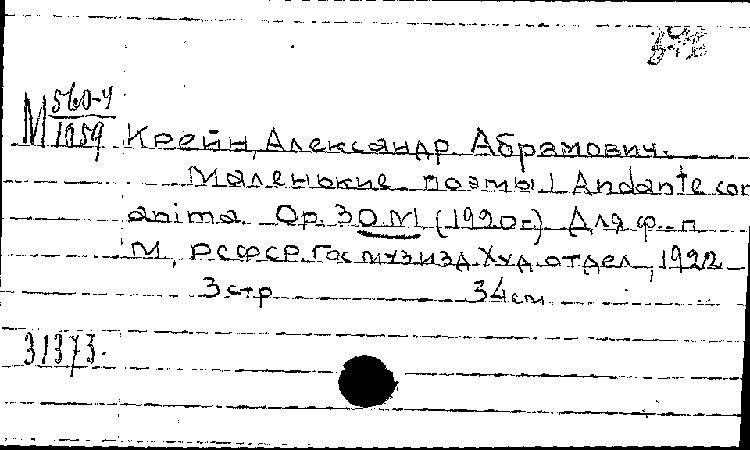 М 560-4/1959
Крейн, Александр Абрамович.
Маленькие поэмы I Andante con
anima. Op. 30. М (1920г.) Для ф.-п
М, РСФСР. Гос муз изд. Худ. отдел, 1922
3 стр 34 см.
31373.